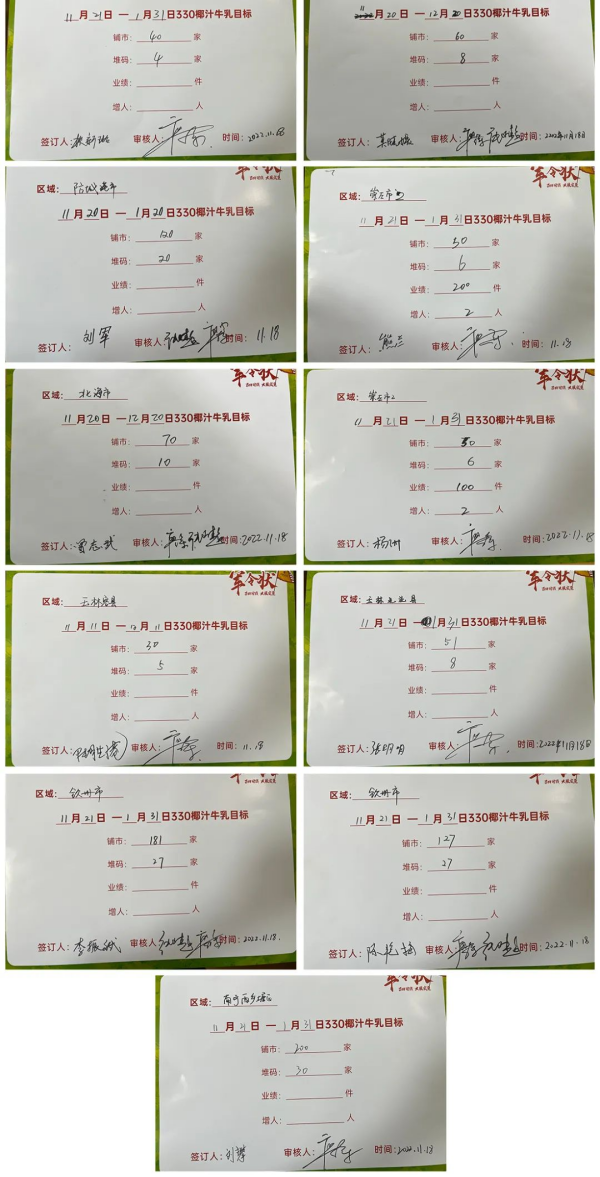 11月21日 — 1月31日330椰汁牛乳目标
铺市: 40 家
堆码: 4 家
业绩: 件
增人: 人
签订人: 审核人: 时间: 2022.11.18
11月20日 — 12月20日330椰汁牛乳目标
铺市: 60 家
堆码: 8 家
业绩: 件
增人: 人
签订人: 审核人: 时间: 2022年11月18日
军令状
区域: 防城港市
11月20日 — 1月20日330椰汁牛乳目标
铺市: 120 家
堆码: 20 家
业绩: 件
增人: 人
签订人: 刘军 审核人: 时间: 11.18
军令状
区域: 崇左市
11月21日 — 1月31日330椰汁牛乳目标
铺市: 50 家
堆码: 6 家
业绩: 200 件
增人: 2 人
签订人: 熊三 审核人: 时间: 11.18
军令状
区域: 北海市
11月20日 — 12月20日330椰汁牛乳目标
铺市: 70 家
堆码: 10 家
业绩: 件
增人: 人
签订人: 审核人: 时间: 2022.11.18
军令状
区域: 崇左市2
11月21日 — 1月31日330椰汁牛乳目标
铺市: 50 家
堆码: 6 家
业绩: 100 件
增人: 2 人
签订人: 审核人: 时间: 2022.11.18
军令状
区域: 玉林 县
11月11日 — 月11日330椰汁牛乳目标
铺市: 30 家
堆码: 5 家
业绩: 件
增人: 人
签订人: 审核人: 时间: 11.18
军令状
区域: 玉林 县
11月21日 — 1月31日330椰汁牛乳目标
铺市: 51 家
堆码: 8 家
业绩: 件
增人: 人
签订人: 张明明 审核人: 时间: 2022年11月18日
区域: 钦州市
11月21日 — 1月31日330椰汁牛乳目标
铺市: 181 家
堆码: 27 家
业绩: 件
增人: 人
签订人: 李振斌 审核人: 时间: 2022.11.18.
区域: 钦州市
11月21日 — 1月31日330椰汁牛乳目标
铺市: 127 家
堆码: 27 家
业绩: 件
增人: 人
签订人: 审核人: 时间: 2022.11.18
军令状
区域: 南宁西乡塘区
11月21日 — 1月31日330椰汁牛乳目标
铺市: 200 家
堆码: 30 家
业绩: 件
增人: 人
签订人: 审核人: 时间: 2022.11.18